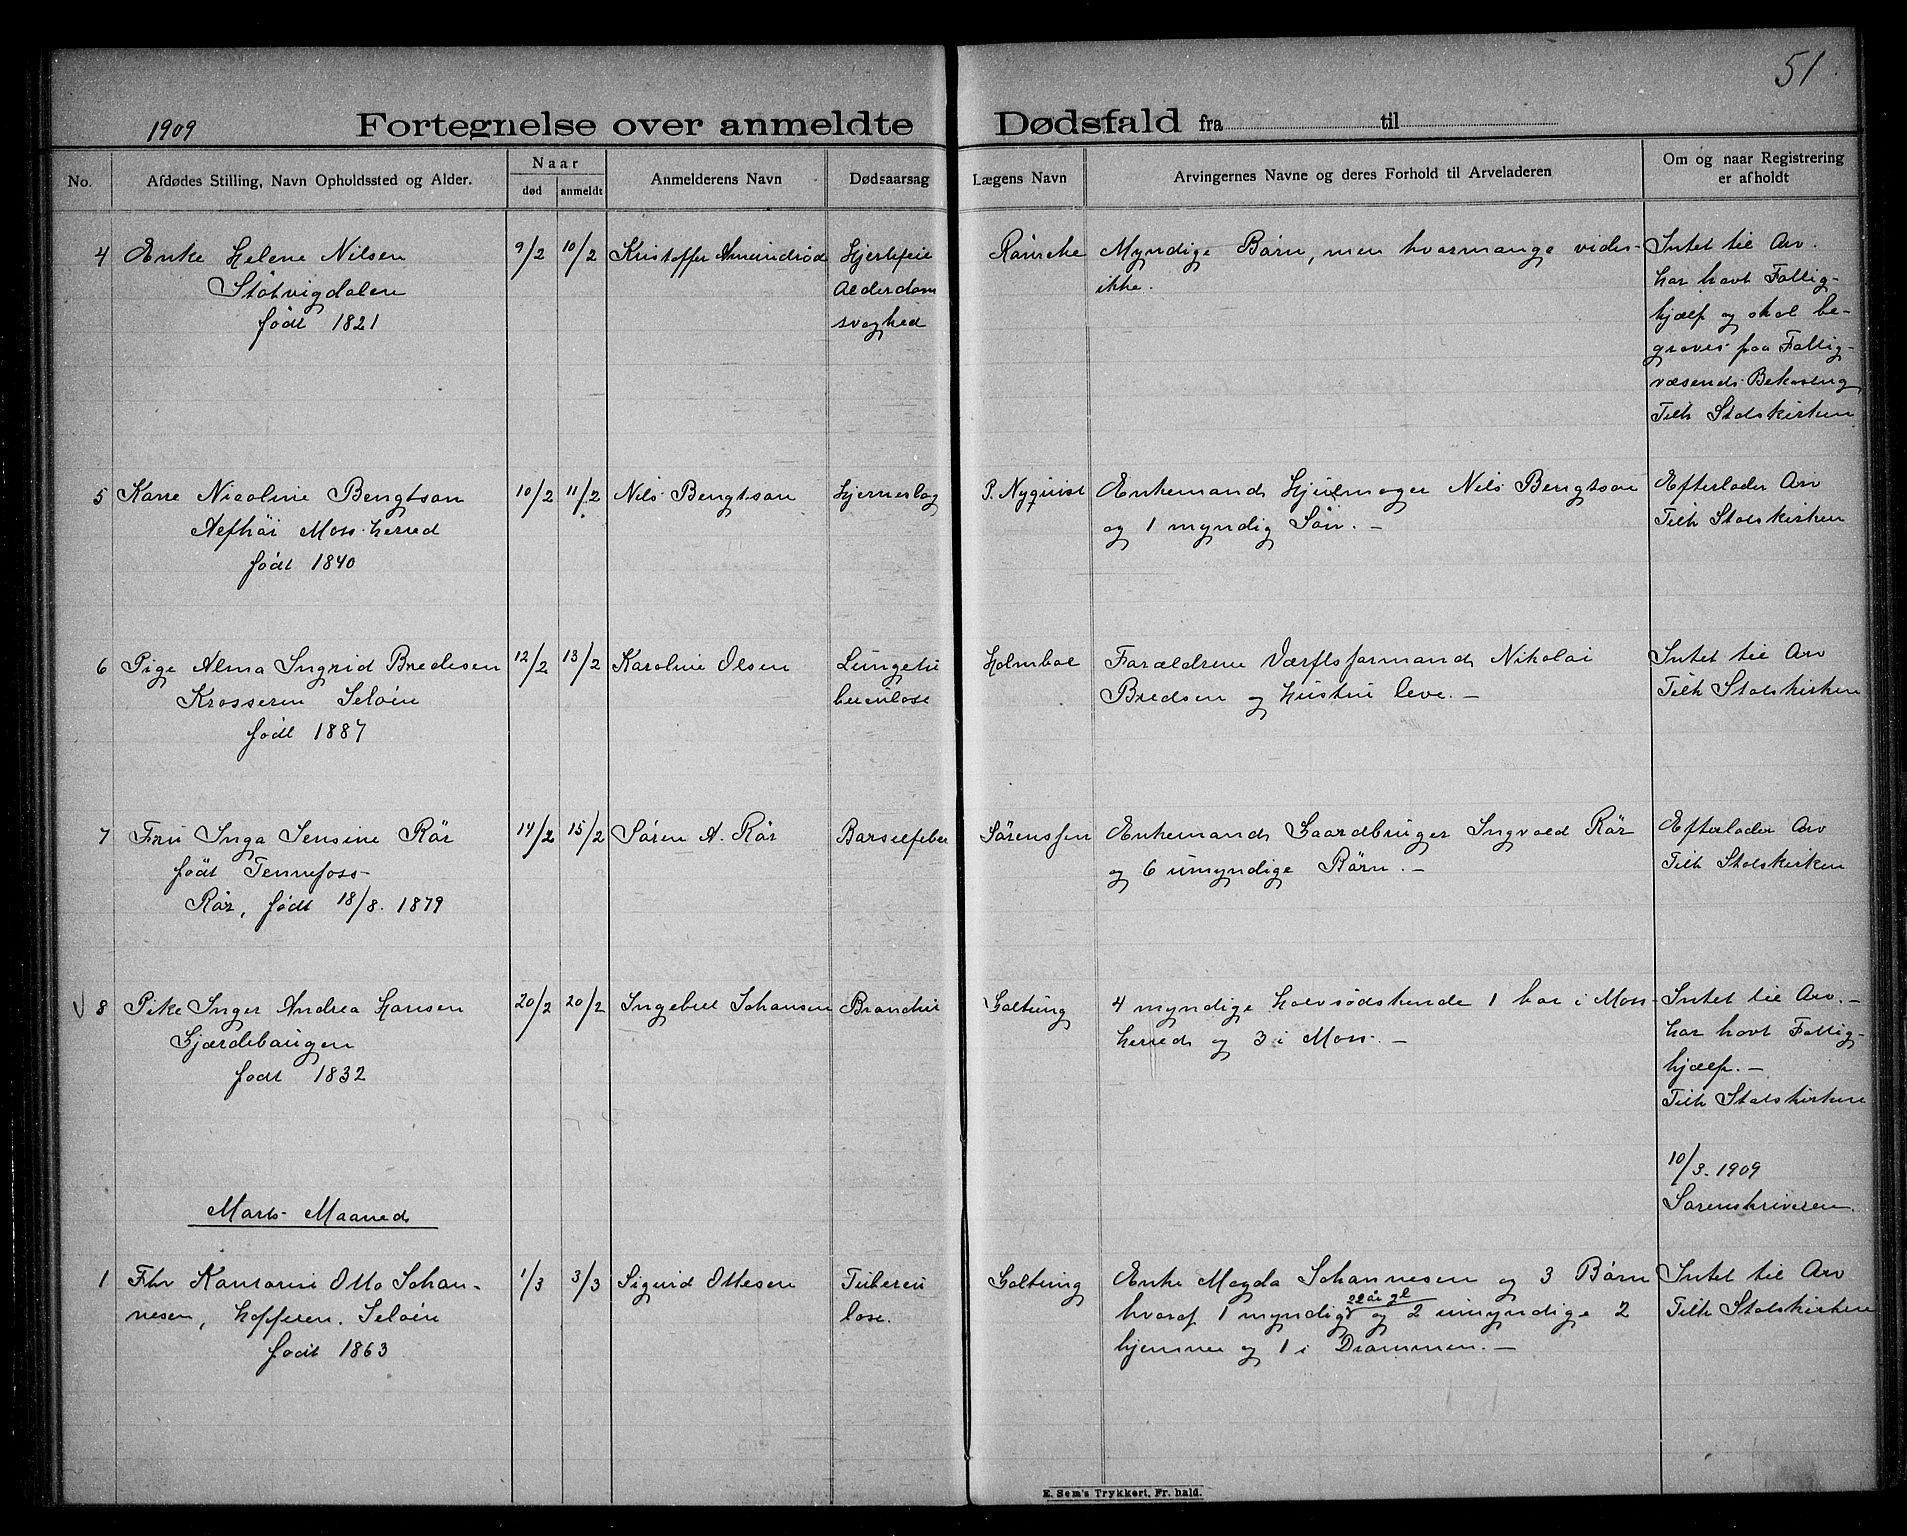 51
1909
Fortegnelse over anmeldte Dødsfald fra til
No.
Afdødes Stilling, Navn Opholdssted og Alder.
Naar
død
anmeldt
Anmelderens Navn
Dødsaarsag
Lægens Navn
Arvingernes Navne og deres Forhold til Arveladeren
Om og naar Registrering
er afholdt
4
Enke Helene Nilsen
Støtvigdalen
født 1821
9/2
10/2
Kristoffer Amundrød
Hjertefeil
Alderdoms
svaghed
Myndige Børn, men hvormange vides
ikke.
Intet til Arv.
har havt Fattig-
hjælp og skal be-
graves paa Fattig-
væsends Bekostng
Tilh Statskirken
5
Kone Nicoline Bengtson
Moss herred
født 1840
10/2
11/2
Nils Bengtson
Hjerneslag
P. Nyquist
Enkemand Hjulmager Nils Bengtson
og 1 myndig Søn. —
Efterlader Arv
Tilh Statskirken
6
Pige Alma Ingrid Bredesen
Krosseren Jeløen
født 1887
12/2
13/2
Karoline Olsen
Lungetu
berculose
Holmboe
Forældrene Værftsformand Nikolai
Bredsen og Hustru leve. —
Intet til Arv
Tilh Statskirken
7
Fru Inga Jensine Rör
født Tennefoss
Rör, født 18/8. 1879
14/2
15/2
Søren A. Rör
Barselfeber
Sørenssen
Enkemand Gaardbruger Ingvald Rör
og 6 umyndige Børn. —
Efterlader Arv
Tilh Statskirken
8
Pike Inger Andrea Hansen
Gjærdebaugen
født 1832
20/2
20/2
Ingebret Johansen
Galtung
4 myndige Halvsødskende 1 bor i Moss
herred og 3 i Moss. —
Intet til Arv. —
har havt Fattig-
hjælp. —
Tilh Statskirken
10/3. 1909
Sorenskriveren.
Marts Maaned
1
Fhv Kantorist Otto Johan-
nesen, Hopperen. Jeløen
født 1863
1/3
3/3
Sigurd Ottesen
Tubercu
lose.
Galtung
Enke Magda Johannesen og 3 Børn
hvoraf 1 myndig 22 år gl og 2 umyndige 2
hjemme og 1 i Drammen. —
Intet til Arv
Tilh Statskirken
E. Sem's Trykkeri, Fr. hald.